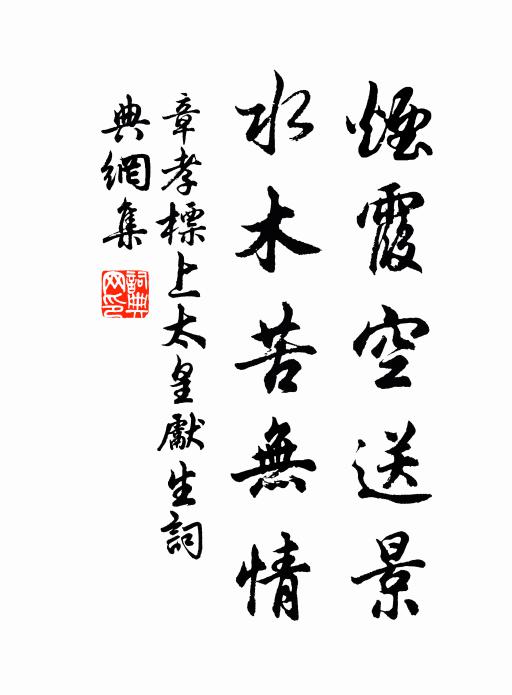 煙霞空送景
水木苦無情
章孝標上太皇獻生詞
典網集
詞典
网印